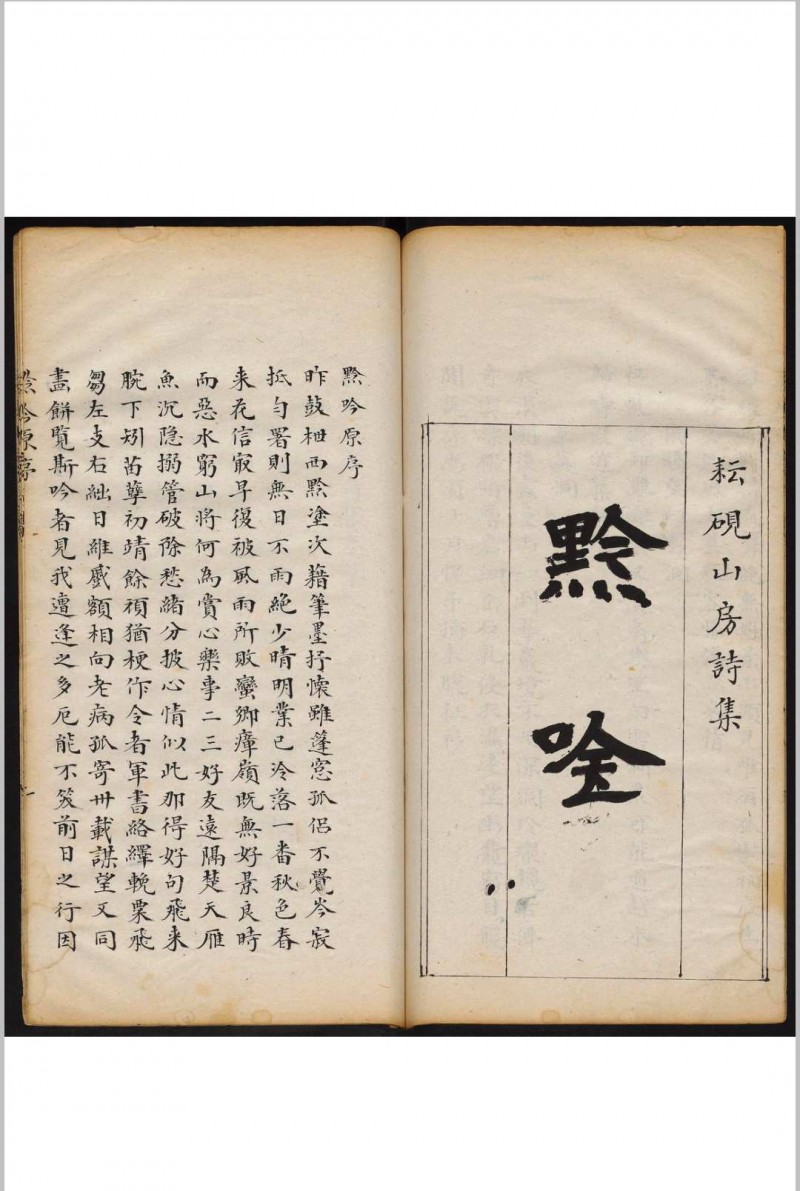 耘硯山房詩集
黔唫
黔吟原序
昨鼓枻西黔塗次藉筆墨抒懷雖蓬窓孤侶不覺岑寂
抵匀署則無日不雨絶少晴明業已冷落一番秋色春
来花信㝡早復被風雨所敗蠻鄉瘴嶺既無好景良時
而惡水窮山將何為賞心樂事二三好友遠隔楚天雁
魚沉隐搦管破除愁緒分披心情似此那得好句飛来
腕下矧苗孽初靖餘頑猶梗作令者軍書絡繹輓粟飛
芻左支右絀日維蹙額相向老病孤寄卅載謀望又同
畫餅覧斯吟者見我遭逢之多厄能不笑前日之行因
黔吟原序